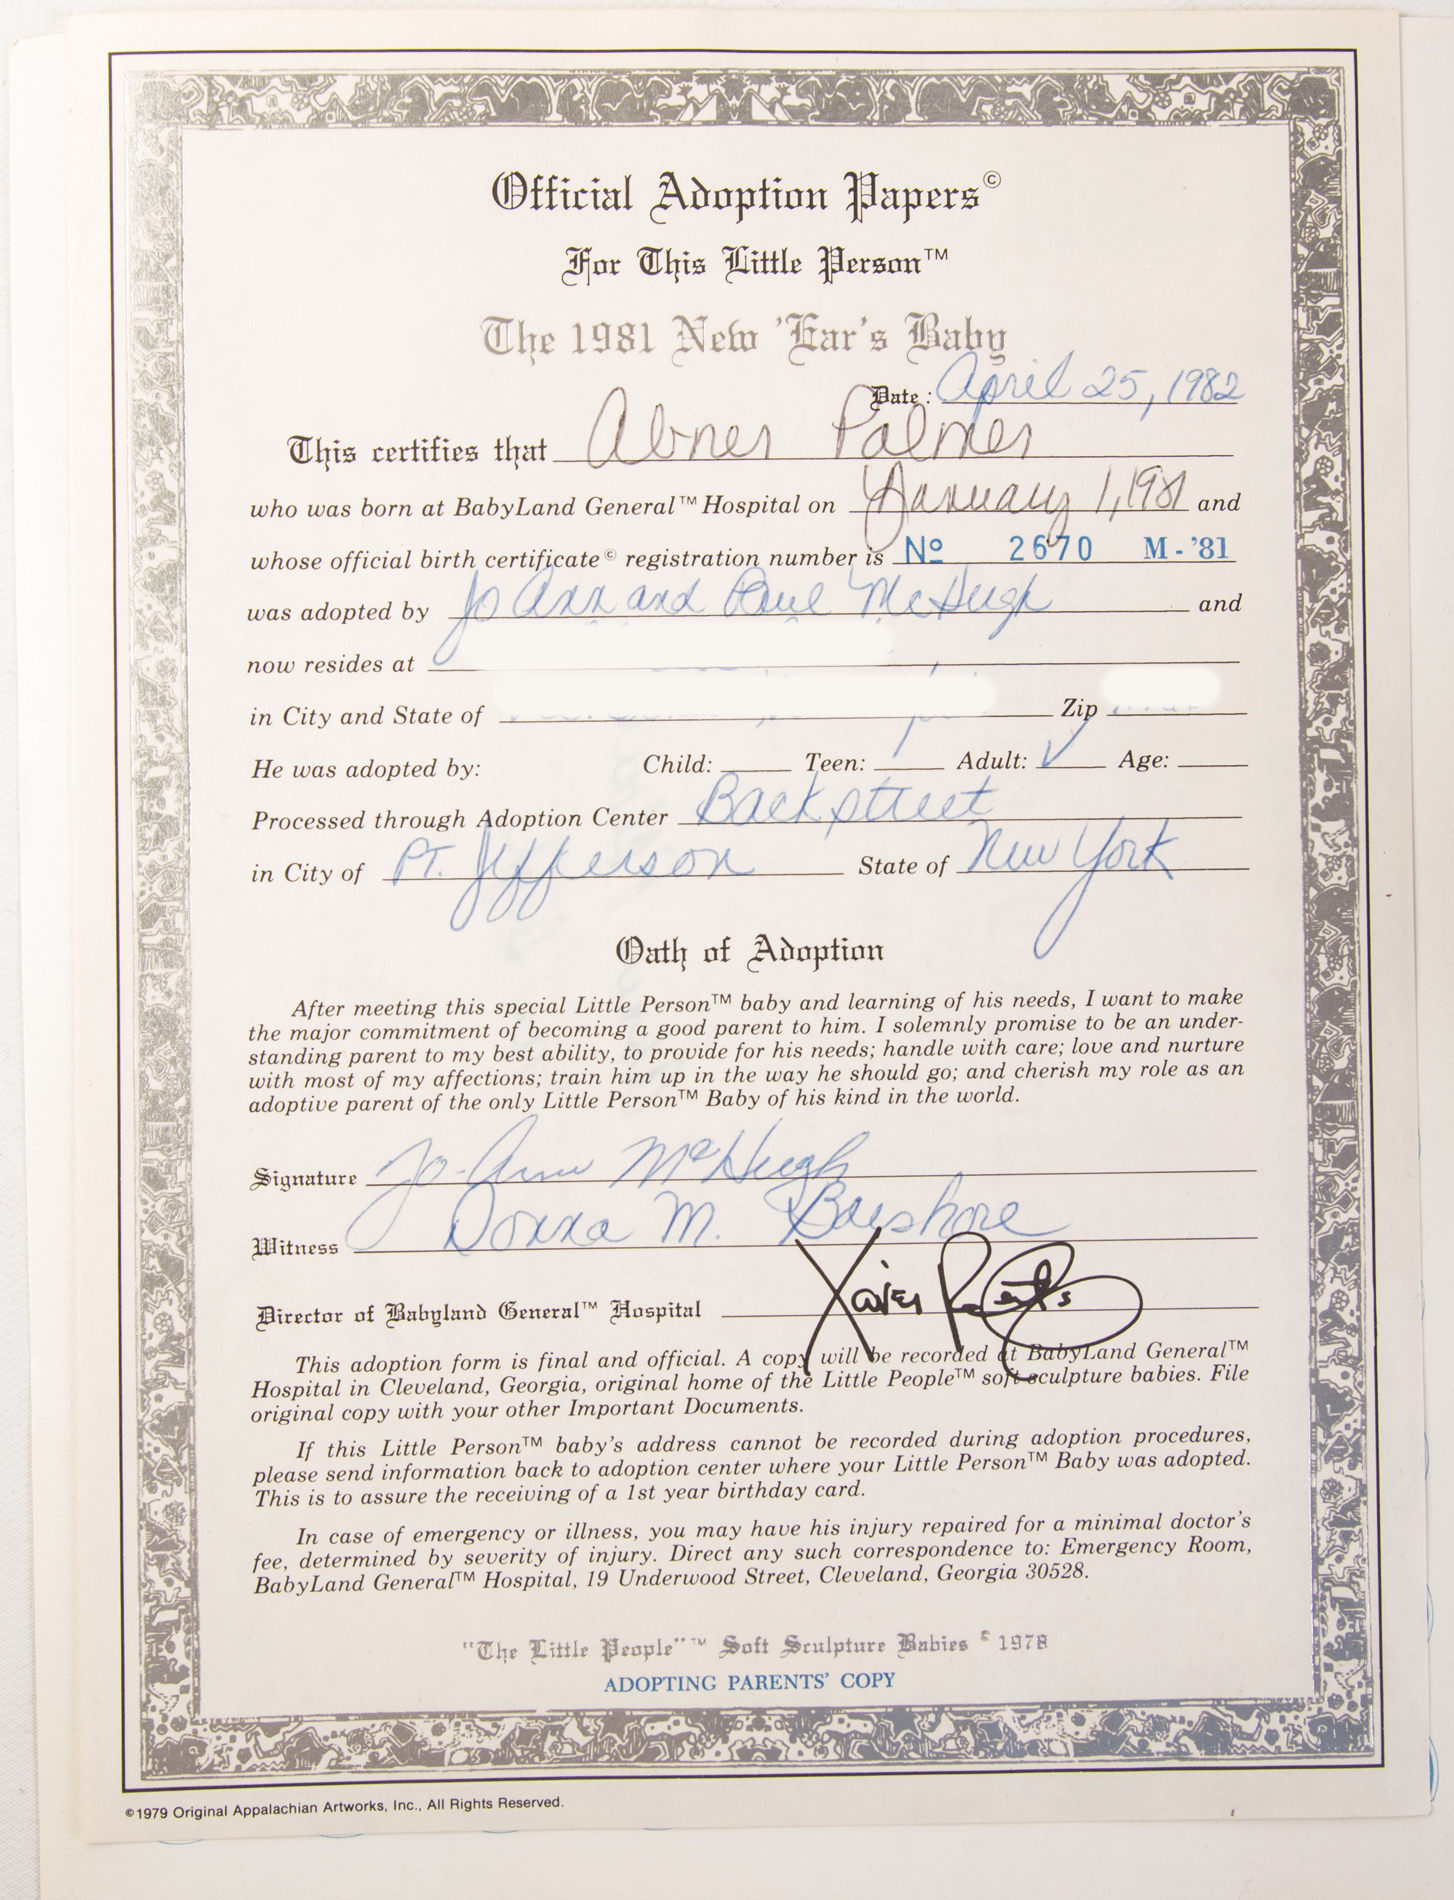 Official Adoption Papers©
For This Little Person™
The 1981 New 'Ear's Baby
Date: April 25, 1982
This certifies that Abner Palmer
who was born at BabyLand General™ Hospital on January 1, 1981 and
whose official birth certificate© registration number is Nº 2670 M-'81
was adopted by Jo Ann and Paul McHugh and
now resides at
in City and State of Zip
He was adopted by: Child: Teen: Adult: ✓ Age:
Processed through Adoption Center Backstreet
in City of Pt. Jefferson State of New York
Oath of Adoption
After meeting this special Little Person™ baby and learning of his needs, I want to make
the major commitment of becoming a good parent to him. I solemnly promise to be an under-
standing parent to my best ability, to provide for his needs; handle with care; love and nurture
with most of my affections; train him up in the way he should go; and cherish my role as an
adoptive parent of the only Little Person™ Baby of his kind in the world.
Signature Jo-Ann McHugh
Witness Donna M.
Director of Babyland General™ Hospital Xavier Roberts
This adoption form is final and official. A copy will be recorded at BabyLand General™
Hospital in Cleveland, Georgia, original home of the Little People™ soft-sculpture babies. File
original copy with your other Important Documents.
If this Little Person™ baby's address cannot be recorded during adoption procedures,
please send information back to adoption center where your Little Person™ Baby was adopted.
This is to assure the receiving of a 1st year birthday card.
In case of emergency or illness, you may have his injury repaired for a minimal doctor's
fee, determined by severity of injury. Direct any such correspondence to: Emergency Room,
BabyLand General™ Hospital, 19 Underwood Street, Cleveland, Georgia 30528.
"The Little People"™ Soft Sculpture Babies © 1978
ADOPTING PARENTS' COPY
©1979 Original Appalachian Artworks, Inc., All Rights Reserved.